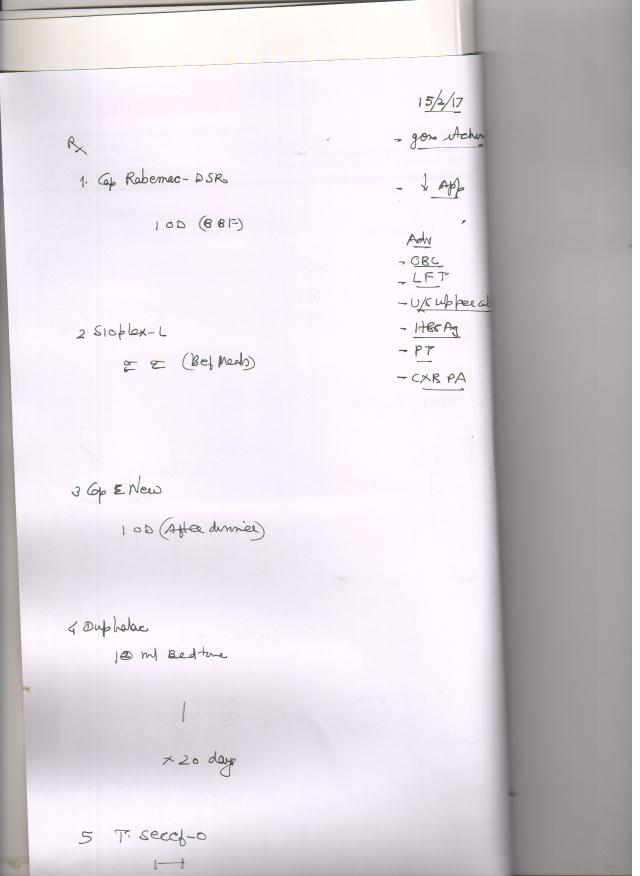 15/2/17
Rx
- gen itchin
1. Cap Rabemac-DSR
- ↓ App
1 OD (BBF)
Adv
- CBC
- LFT
- U/S upper ab
2 Sioplex-L
- HBsAg
(Bef Meals)
- PT
- CXR PA
3 Cap E New
1 OD (After dinner)
4 Duphalac
10 ml Bedtime
x 20 days
5 T.